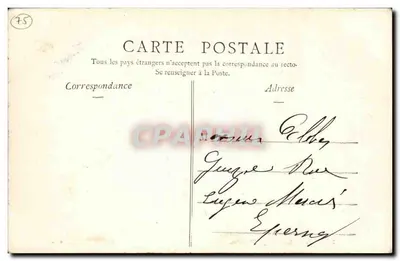 75
CARTE POSTALE
Tous les pays étrangers n'acceptent pas la correspondance au recto-
Se renseigner à la Poste.
Correspondance
Adresse
Rue
Eugène Mercier
Epernay